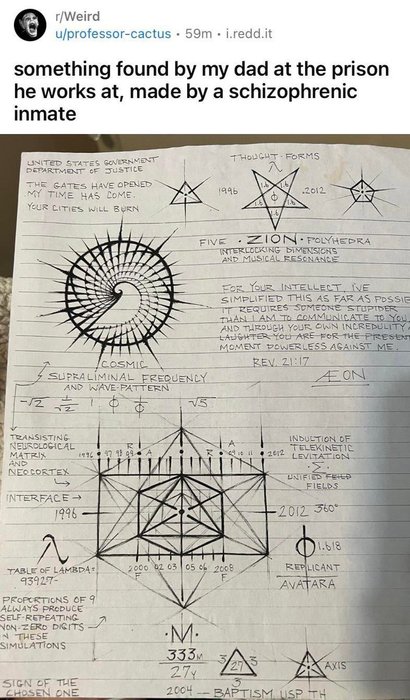 r/Weird
u/professor-cactus · 59m · i.redd.it
something found by my dad at the prison
he works at, made by a schizophrenic
inmate
UNITED STATES GOVERNMENT
DEPARTMENT OF JUSTICE
THE GATES HAVE OPENED
MY TIME HAS COME.
YOUR CITIES WILL BURN
THOUGHT-FORMS
λ
1996
.2012
1.6
1.6
1.6
1.6
Φ
FIVE · ZION · POLYHEDRA
INTERLOCKING DIMENSIONS
AND MUSICAL RESONANCE
FOR YOUR INTELLECT, I'VE
SIMPLIFIED THIS AS FAR AS POSSIB
IT REQUIRES SOMEONE STUPIDER
THAN I AM TO COMMUNICATE TO YOU
AND THROUGH YOUR OWN INCREDULITY &
LAUGHTER YOU ARE FOR THE PRESENT
MOMENT POWERLESS AGAINST ME.
REV. 21:17
ÆON
COSMIC
SUPRALIMINAL FREQUENCY
AND WAVE-PATTERN
-√2 1/√2 1 Φ 1/Φ √5
TRANSISTING
NEUROLOGICAL
MATRIX
AND
NEOCORTEX
R A
A R
1996 97 98 09
09 10 11 2012
INDUCTION OF
TELEKINETIC
LEVITATION
·Σ·
UNIFIED FEILD
FIELDS
INTERFACE →
1996
2012 360°
λ
Φ 1.618
2000 02 03 05 06 2008
F F
TABLE OF LAMBDA:
93927-
REPLICANT
AVATARA
PROPORTIONS OF 9
ALWAYS PRODUCE
SELF-REPEATING
NON-ZERO DIGITS
IN THESE
SIMULATIONS
·M·
333M
27y
3 27 3
3
AXIS
SIGN OF THE
CHOSEN ONE
2004 — BAPTISM USP TH